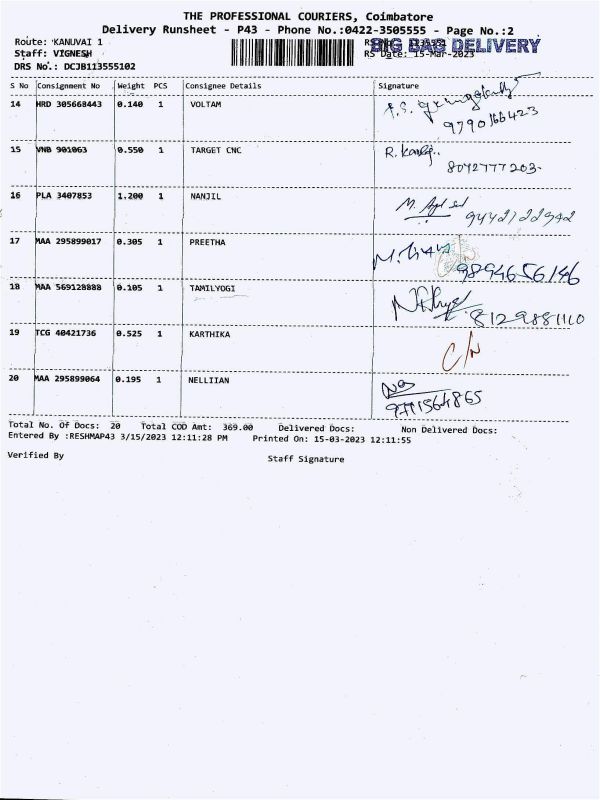 THE PROFESSIONAL COURIERS, Coimbatore
Delivery Runsheet - P43 - Phone No.:0422-3505555 - Page No.:2
Route: KANUVAI 1
BIG BAG DELIVERY
Staff: VIGNESH
RS Date: 15-Mar-2023
DRS No.: DCJB113555102
S No Consignment No Weight PCS Consignee Details Signature
14 HRD 305668443 0.140 1 VOLTAM
9790166423
15 VNB 901063 0.550 1 TARGET CNC
8042777203.
16 PLA 3407853 1.200 1 NANJIL
9442122942
17 MAA 295899017 0.305 1 PREETHA
9894656146
18 MAA 569128888 0.105 1 TAMILYOGI
8129881110
19 TCG 40421736 0.525 1 KARTHIKA C/N
20 MAA 295899064 0.195 1 NELLIIAN
9711564865
Total No. Of Docs: 20 Total COD Amt: 369.00 Delivered Docs: Non Delivered Docs:
Entered By :RESHMAP43 3/15/2023 12:11:28 PM Printed On: 15-03-2023 12:11:55
Verified By Staff Signature